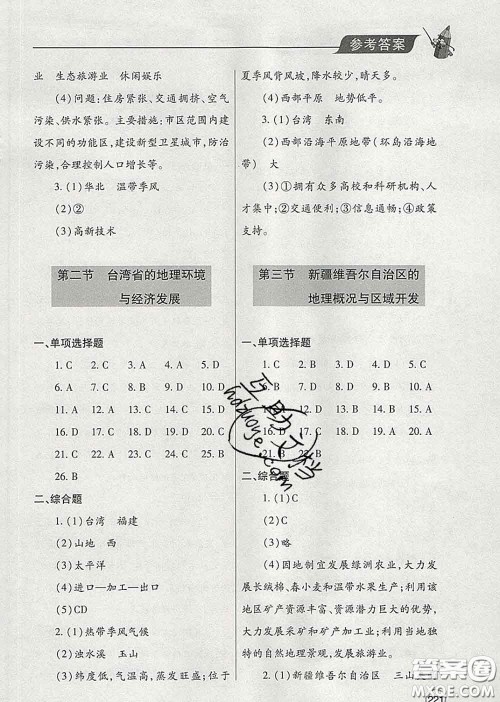 参考答案
业　生态旅游业　休闲娱乐
(4)问题：住房紧张、交通拥挤、空气
污染、供水紧张。主要措施：市区范围内建
设不同的功能区，建设新型卫星城市，防治
污染，合理控制人口增长等。
3. (1)华北　温带季风
(2)②
(3)高新技术
第二节　台湾省的地理环境
与经济发展
一、单项选择题
1. C　2. C　3. A　4. A　5. D
6. A　7. D　8. B　9. D　10. D
11. A　12. A　13. C　14. D　15. C
16. D　17. C　18. D　19. D　20. C
21. C　22. C　23. C　24. B　25. C
26. B
二、综合题
1. (1)台湾　福建
(2)山地　西
(3)太平洋
(4)进口—加工—出口
(5)CD
2. (1)热带季风气候
(2)浊水溪　玉山
(3)纬度低，气温高，蒸发旺盛；位于
夏季风背风坡，降水较少，晴天多。
(4)西部平原　地势低平。
3. (1)台湾　东南
(2)西部沿海平原地带(环岛沿海地
带)　大
(3)①拥有众多高校和科研机构、人
才集中；②交通便利；③信息通畅；④政策
支持。
第三节　新疆维吾尔自治区的
地理概况与区域开发
一、单项选择题
1. C　2. B　3. A　4. B　5. D
B　8. B　9. C　10. A
14. D　15. A
16. D　17. D　18. B　19. D　20. A
21. B　22. B
二、综合题
1. (1)C
(2)C
(3)略
(4)因地制宜发展绿洲农业，大力发
展长绒棉、春小麦和温带水果生产；利用该
地区矿产资源丰富、资源潜力巨大的优势，
大力发展采矿和矿产加工；利用当地独
特的自然地理景观，发展旅游业。
2. (1)新疆维吾尔自治区　三山
221
互助文档
hdzuoye.com
答案圈
MXQE.COM